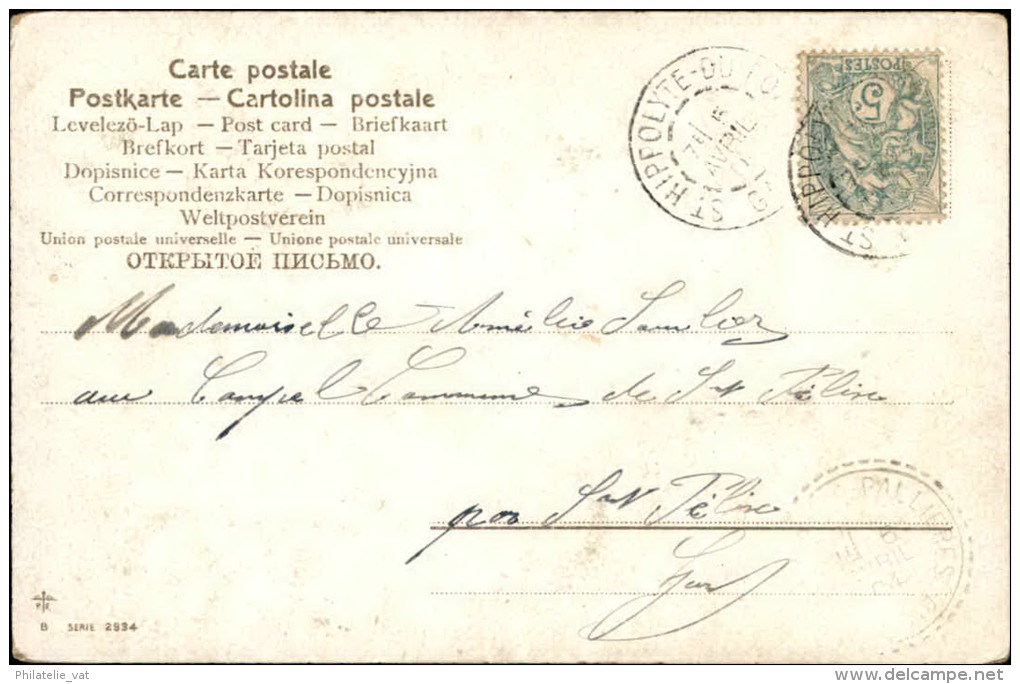 Carte postale
Postkarte — Cartolina postale
Levelezö-Lap — Post card — Briefkaart
Brefkort — Tarjeta postal
Dopisnice — Karta Korespondencyjna
Correspondenzkarte — Dopisnica
Weltpostverein
Union postale universelle — Unione postale universale
ОТКРЫТОЕ ПИСЬМО.
ST HIPPOLYTE-DU
AVRIL
POSTES
5
ST HIPPOLY
Mademoiselle Amélie
au Commune de St
par St
Gard
B SERIE 2934
Philatelie_vat
delcampe.net